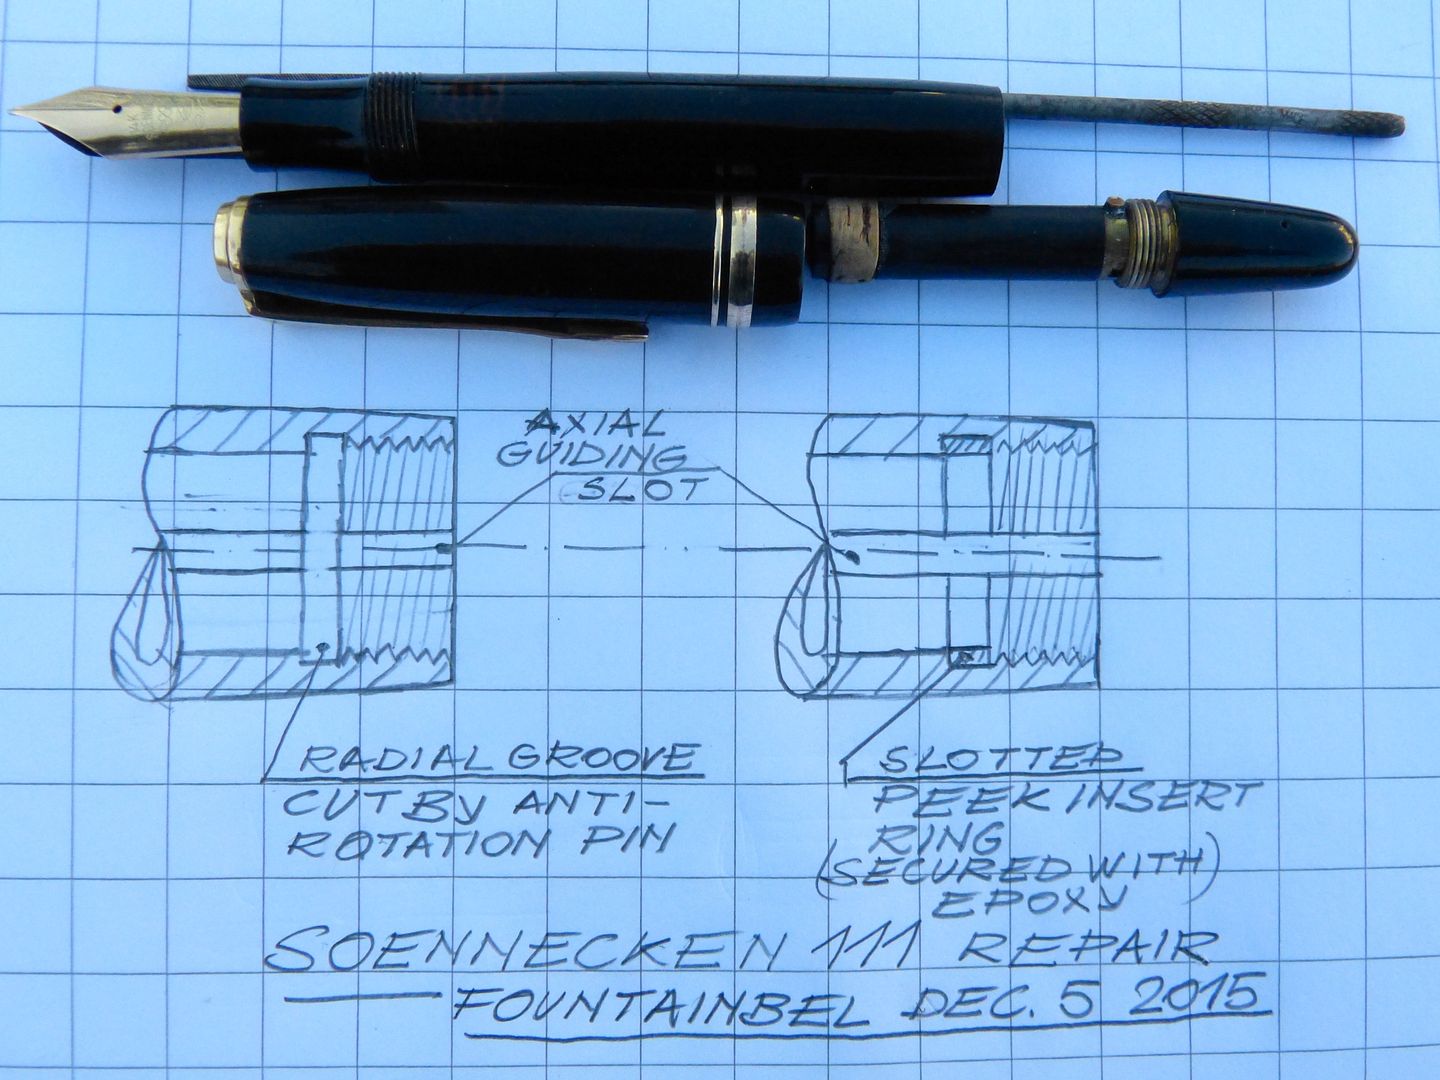 AXIAL
GUIDING
SLOT
RADIAL GROOVE
CUT BY ANTI-
ROTATION PIN
SLOTTED
PEEK INSERT
RING
(SECURED WITH)
EPOXY
SOENNECKEN 111 REPAIR
FOUNTAINBEL DEC. 5 2015